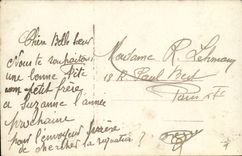 Chère Belle Sœur
Nous te souhaitons
une bonne fête
un petit frère
a Suzanne l'année
prochaine
pour l'envoyeur prière
de chercher la signature ?
Madame R. Lehmann
18 R. Paul Bert
Paris XI